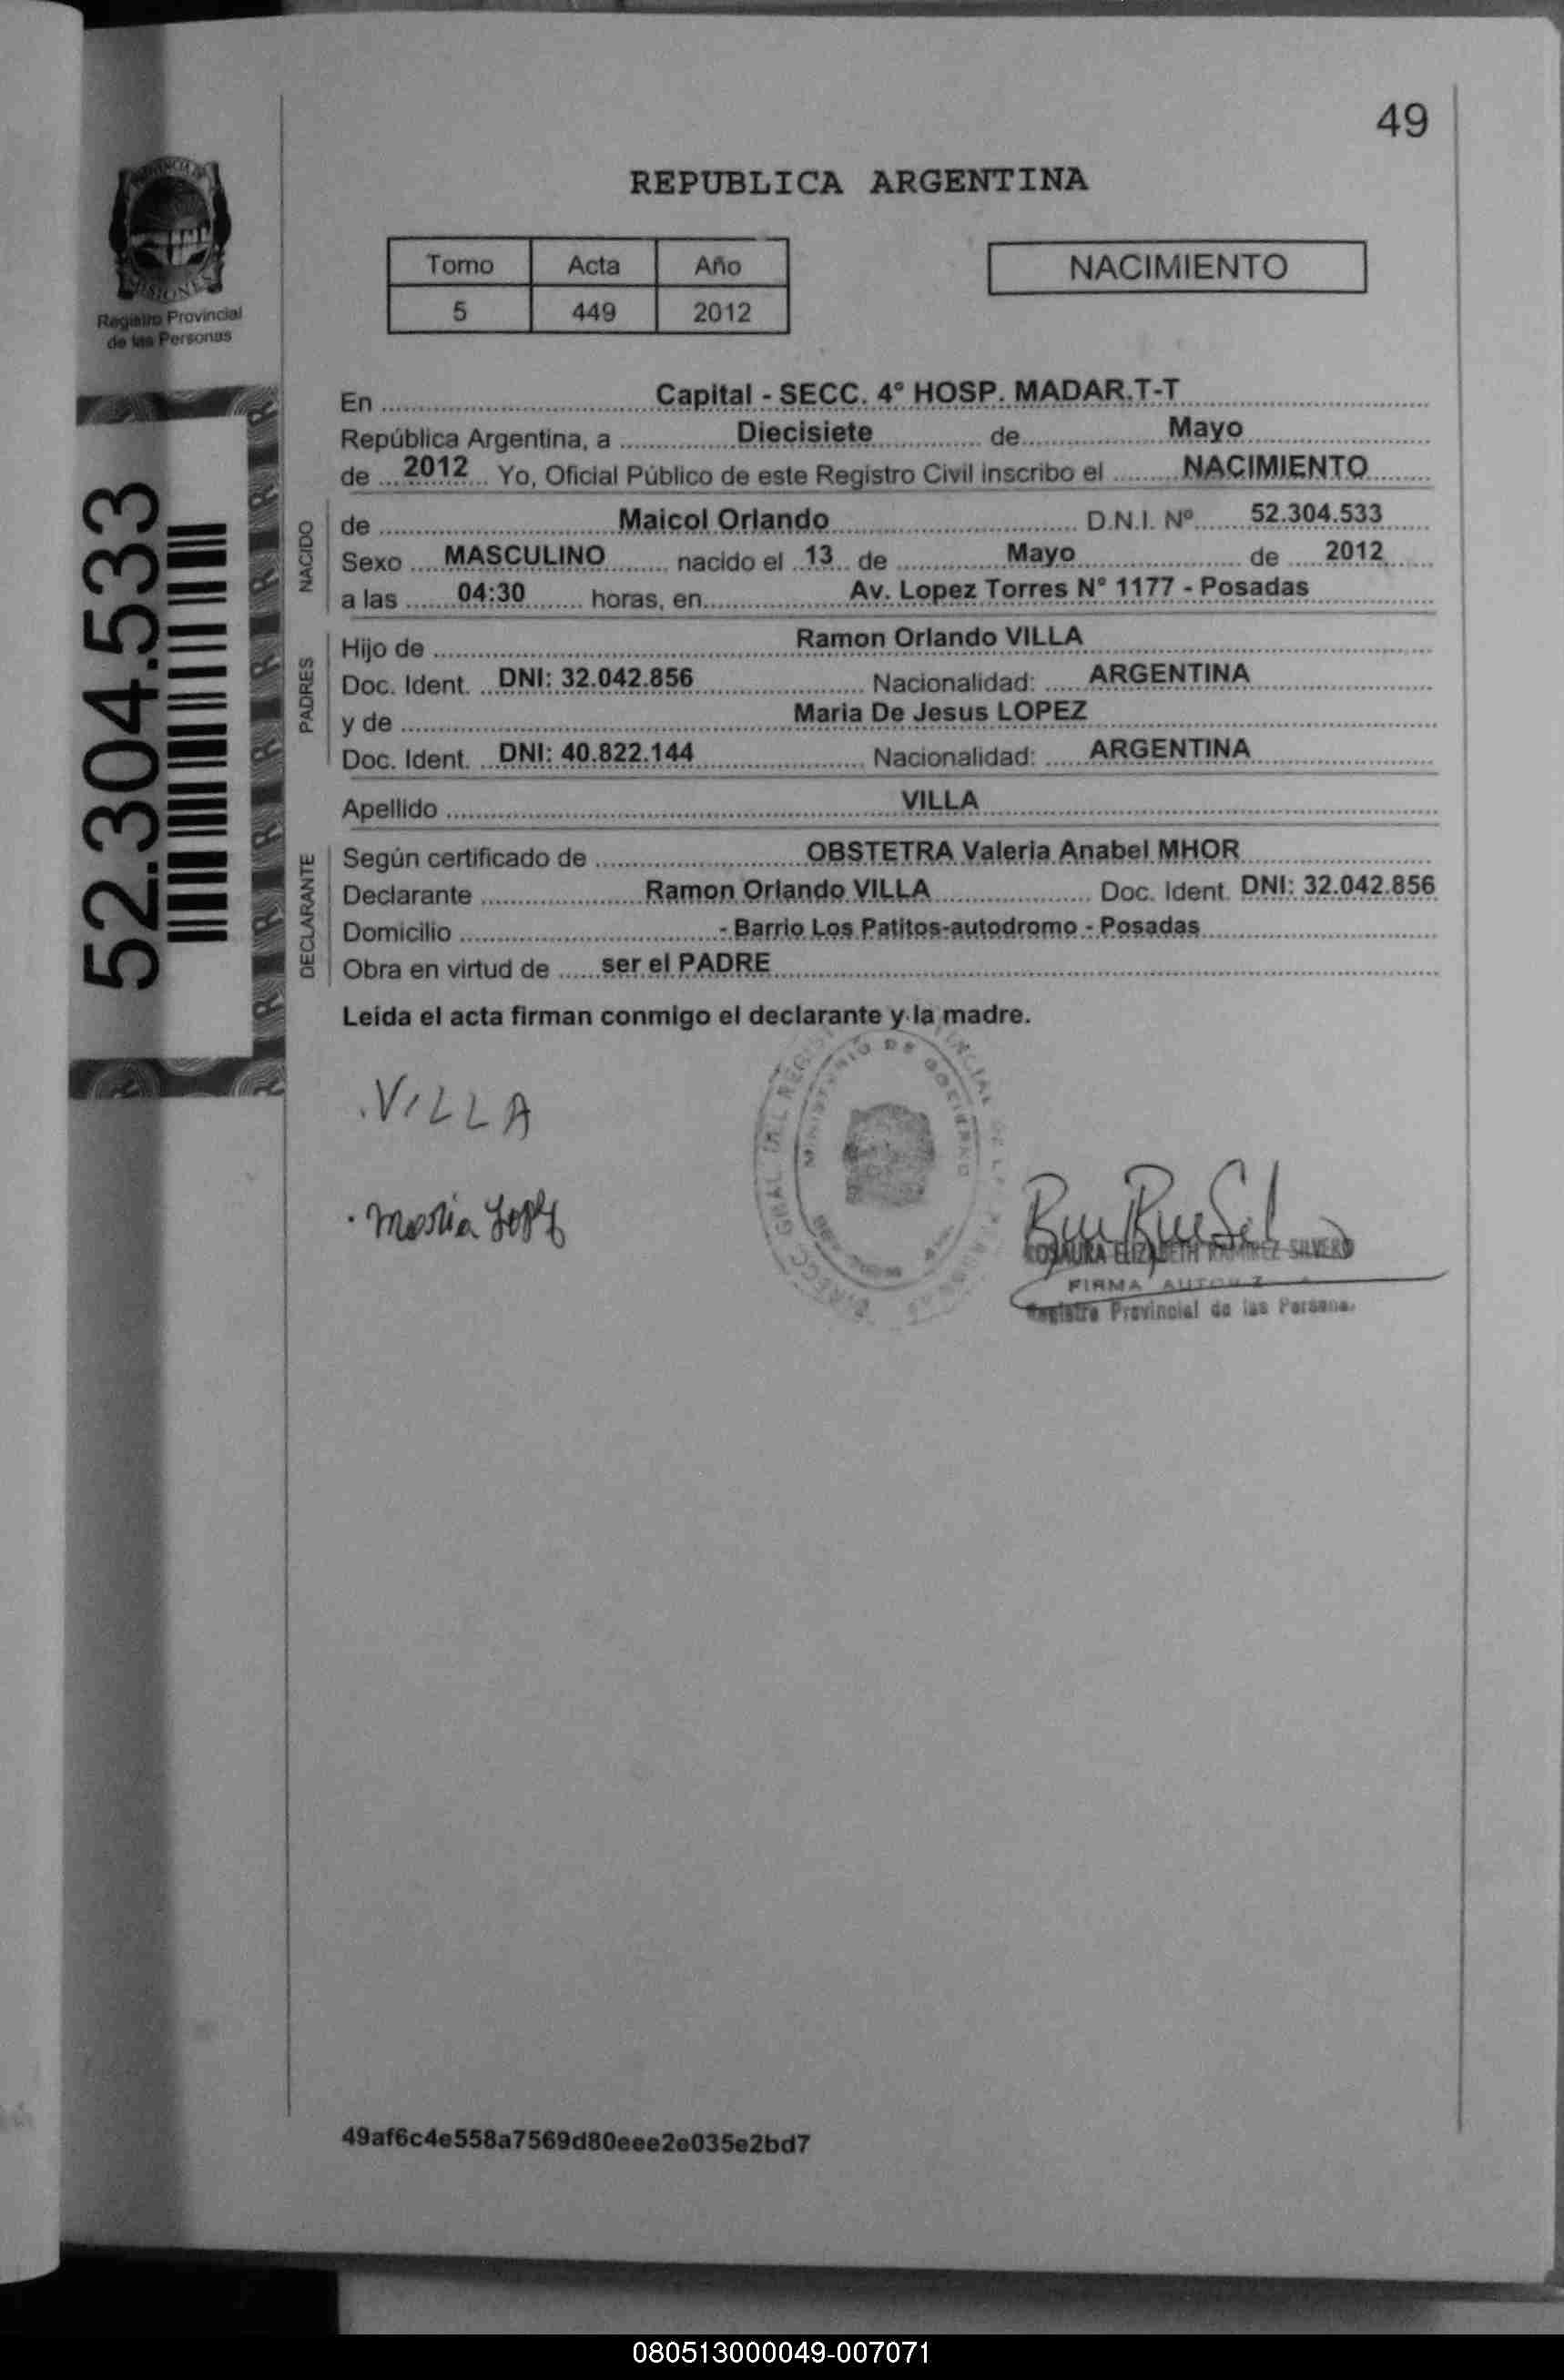 49
PROVINCIA DE
MISIONES
Registro Provincial
de las Personas
REPUBLICA ARGENTINA
Tomo Acta Año
5 449 2012
NACIMIENTO
52.304.533
En Capital - SECC. 4° HOSP. MADAR.T-T
República Argentina, a Diecisiete de Mayo
de 2012 Yo, Oficial Público de este Registro Civil inscribo el NACIMIENTO
NACIDO
de Maicol Orlando D.N.I. Nº 52.304.533
Sexo MASCULINO nacido el 13 de Mayo de 2012
a las 04:30 horas, en Av. Lopez Torres N° 1177 - Posadas
PADRES
Hijo de Ramon Orlando VILLA
Doc. Ident. DNI: 32.042.856 Nacionalidad: ARGENTINA
y de Maria De Jesus LOPEZ
Doc. Ident. DNI: 40.822.144 Nacionalidad: ARGENTINA
Apellido VILLA
DECLARANTE
Según certificado de OBSTETRA Valeria Anabel MHOR
Declarante Ramon Orlando VILLA Doc. Ident. DNI: 32.042.856
Domicilio - Barrio Los Patitos-autodromo - Posadas
Obra en virtud de ser el PADRE
Leída el acta firman conmigo el declarante y la madre.
VILLA
Maria Lopez
MINISTERIO DE GOBIERNO
ROSAURA ELIZABETH RAMIREZ SILVERO
FIRMA AUTORIZ
Registro Provincial de las Persona
49af6c4e558a7569d80eee2e035e2bd7
080513000049-007071